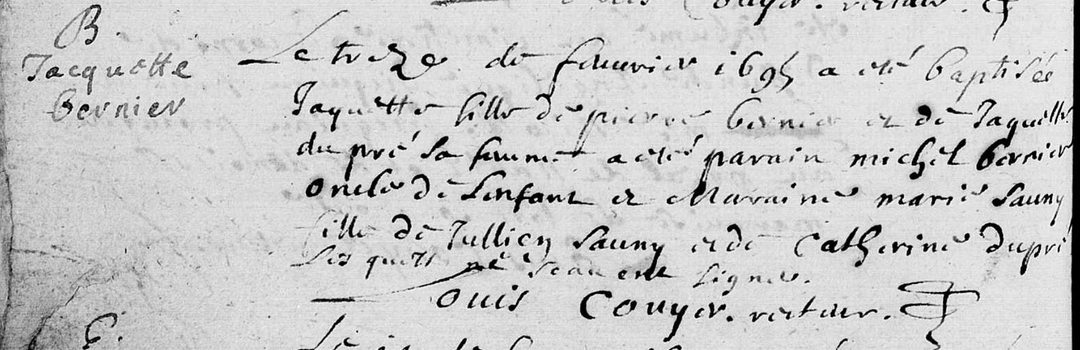 B
Jacquette
bernier
Le treze de feuvrier 1695 a eté baptisée
Jaquette fille de pierre bernier et de Jaquette
du pré sa femme a eté parain michel bernier
oncle de Lenfant et Maraine marie Sauny
fille de Jullien Sauny et de Catherine dupré
Lesquels ne scavent signer.
Louis Couyer. recteur.